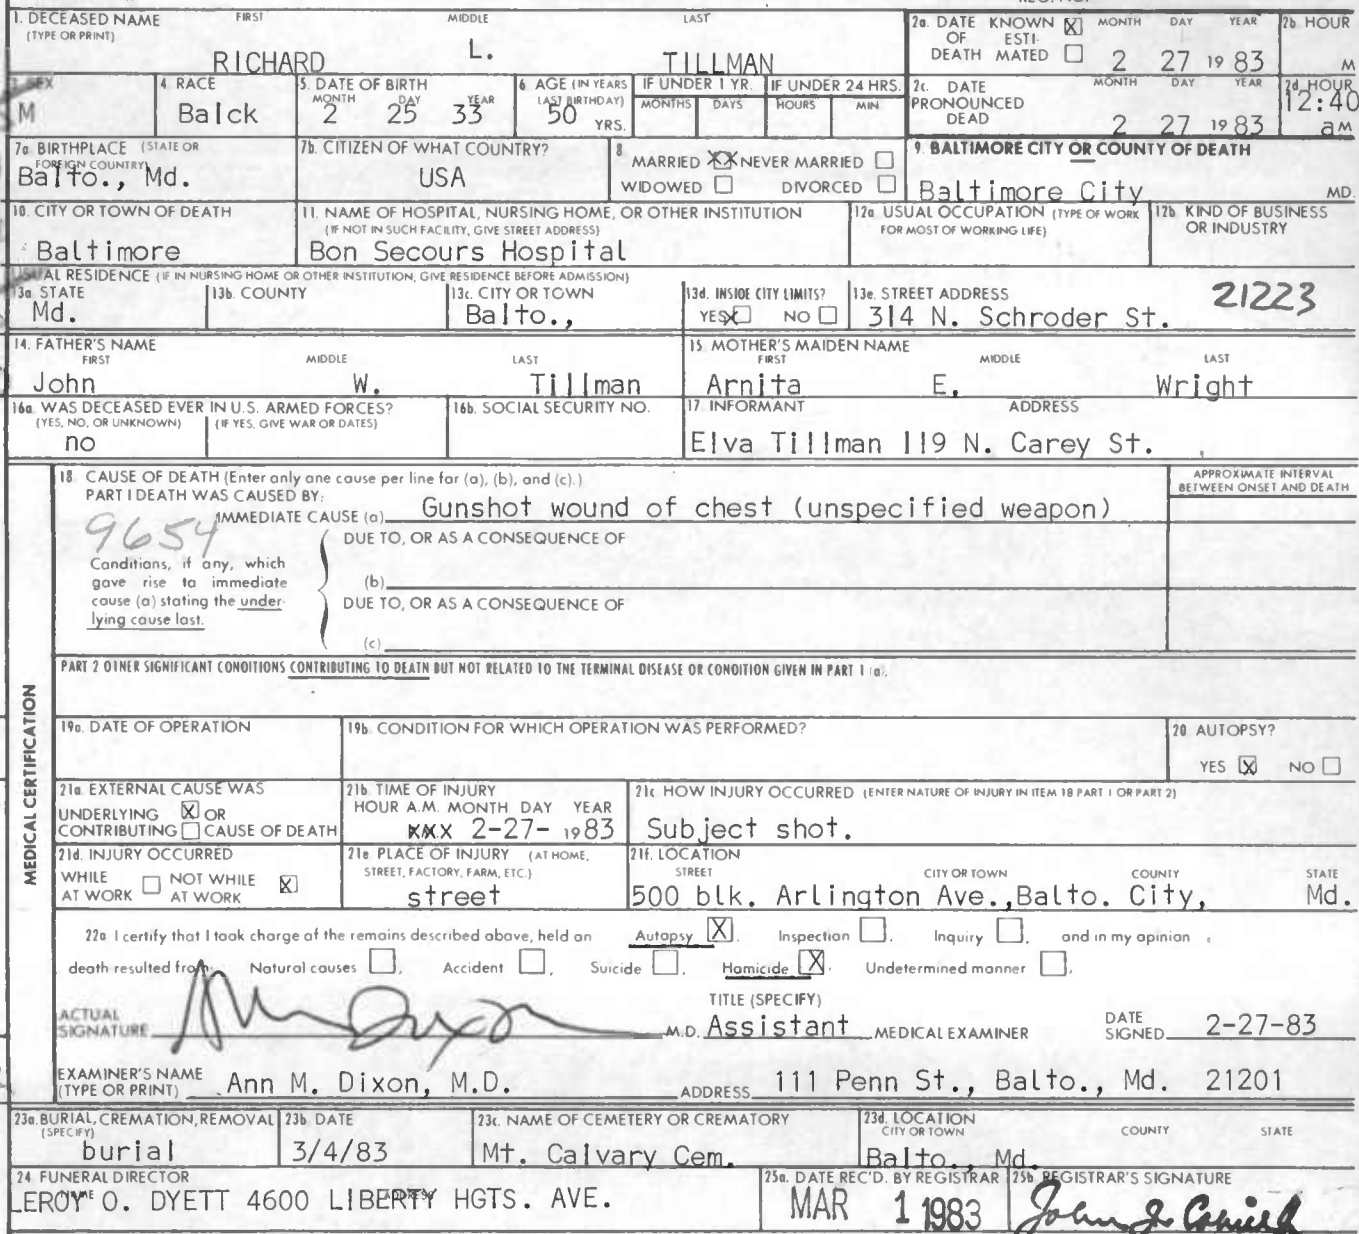 1. DECEASED NAME FIRST MIDDLE LAST
(TYPE OR PRINT)
RICHARD L. TILLMAN
2a. DATE KNOWN X MONTH DAY YEAR
OF ESTI-
DEATH MATED 2 27 1983
2b HOUR
M
SEX
M
4. RACE
Balck
5. DATE OF BIRTH
MONTH DAY YEAR
2 25 33
6 AGE (IN YEARS
LAST BIRTHDAY)
50 YRS.
IF UNDER 1 YR.
MONTHS DAYS
IF UNDER 24 HRS.
HOURS MIN.
2c. DATE MONTH DAY YEAR
PRONOUNCED
DEAD 2 27 1983
2d HOUR
12:40
aM
7a BIRTHPLACE (STATE OR
FOREIGN COUNTRY)
Balto., Md.
7b. CITIZEN OF WHAT COUNTRY?
USA
8 MARRIED XX NEVER MARRIED
WIDOWED DIVORCED
9. BALTIMORE CITY OR COUNTY OF DEATH
Baltimore City MD.
10. CITY OR TOWN OF DEATH
Baltimore
11. NAME OF HOSPITAL, NURSING HOME, OR OTHER INSTITUTION
(IF NOT IN SUCH FACILITY, GIVE STREET ADDRESS)
Bon Secours Hospital
12a USUAL OCCUPATION (TYPE OF WORK
FOR MOST OF WORKING LIFE)
12b KIND OF BUSINESS
OR INDUSTRY
USUAL RESIDENCE (IF IN NURSING HOME OR OTHER INSTITUTION, GIVE RESIDENCE BEFORE ADMISSION)
13a STATE
Md.
13b. COUNTY
13c. CITY OR TOWN
Balto.,
13d. INSIDE CITY LIMITS?
YES X NO
13e. STREET ADDRESS 21223
314 N. Schroder St.
14. FATHER'S NAME
FIRST MIDDLE LAST
John W. Tillman
15. MOTHER'S MAIDEN NAME
FIRST MIDDLE LAST
Arnita E. Wright
16a WAS DECEASED EVER IN U.S. ARMED FORCES?
(YES, NO, OR UNKNOWN) (IF YES, GIVE WAR OR DATES)
no
16b. SOCIAL SECURITY NO.
17 INFORMANT ADDRESS
Elva Tillman 119 N. Carey St.
MEDICAL CERTIFICATION
18 CAUSE OF DEATH (Enter only one cause per line for (a), (b), and (c).)
APPROXIMATE INTERVAL
BETWEEN ONSET AND DEATH
PART I DEATH WAS CAUSED BY:
IMMEDIATE CAUSE (a) Gunshot wound of chest (unspecified weapon)
9654
DUE TO, OR AS A CONSEQUENCE OF
Conditions, if any, which
gave rise to immediate
cause (a) stating the under-
lying cause last.
(b)
DUE TO, OR AS A CONSEQUENCE OF
(c)
PART 2 OTHER SIGNIFICANT CONDITIONS CONTRIBUTING TO DEATH BUT NOT RELATED TO THE TERMINAL DISEASE OR CONDITION GIVEN IN PART 1 (a).
19a. DATE OF OPERATION
19b. CONDITION FOR WHICH OPERATION WAS PERFORMED?
20 AUTOPSY?
YES X NO
21a EXTERNAL CAUSE WAS
UNDERLYING X OR
CONTRIBUTING CAUSE OF DEATH
21b TIME OF INJURY
HOUR A.M. MONTH DAY YEAR
XXX 2-27- 1983
21c HOW INJURY OCCURRED (ENTER NATURE OF INJURY IN ITEM 18 PART 1 OR PART 2)
Subject shot.
21d. INJURY OCCURRED
WHILE NOT WHILE X
AT WORK AT WORK
21e PLACE OF INJURY (AT HOME,
STREET, FACTORY, FARM, ETC.)
street
21f. LOCATION
STREET CITY OR TOWN COUNTY STATE
500 blk. Arlington Ave., Balto. City, Md.
22a I certify that I took charge of the remains described above, held an Autopsy X, Inspection , Inquiry , and in my opinion
death resulted from: Natural causes , Accident , Suicide , Homicide X, Undetermined manner .
ACTUAL
SIGNATURE Ann Dixon M.D.
TITLE (SPECIFY)
Assistant MEDICAL EXAMINER
DATE
SIGNED 2-27-83
EXAMINER'S NAME
(TYPE OR PRINT) Ann M. Dixon, M.D. ADDRESS 111 Penn St., Balto., Md. 21201
23a. BURIAL, CREMATION, REMOVAL
(SPECIFY)
burial
23b DATE
3/4/83
23c. NAME OF CEMETERY OR CREMATORY
Mt. Calvary Cem.
23d. LOCATION
CITY OR TOWN COUNTY STATE
Balto., Md.
24 FUNERAL DIRECTOR
NAME ADDRESS
LEROY O. DYETT 4600 LIBERTY HGTS. AVE.
25a. DATE REC'D. BY REGISTRAR
MAR 1 1983
25b REGISTRAR'S SIGNATURE
John J.